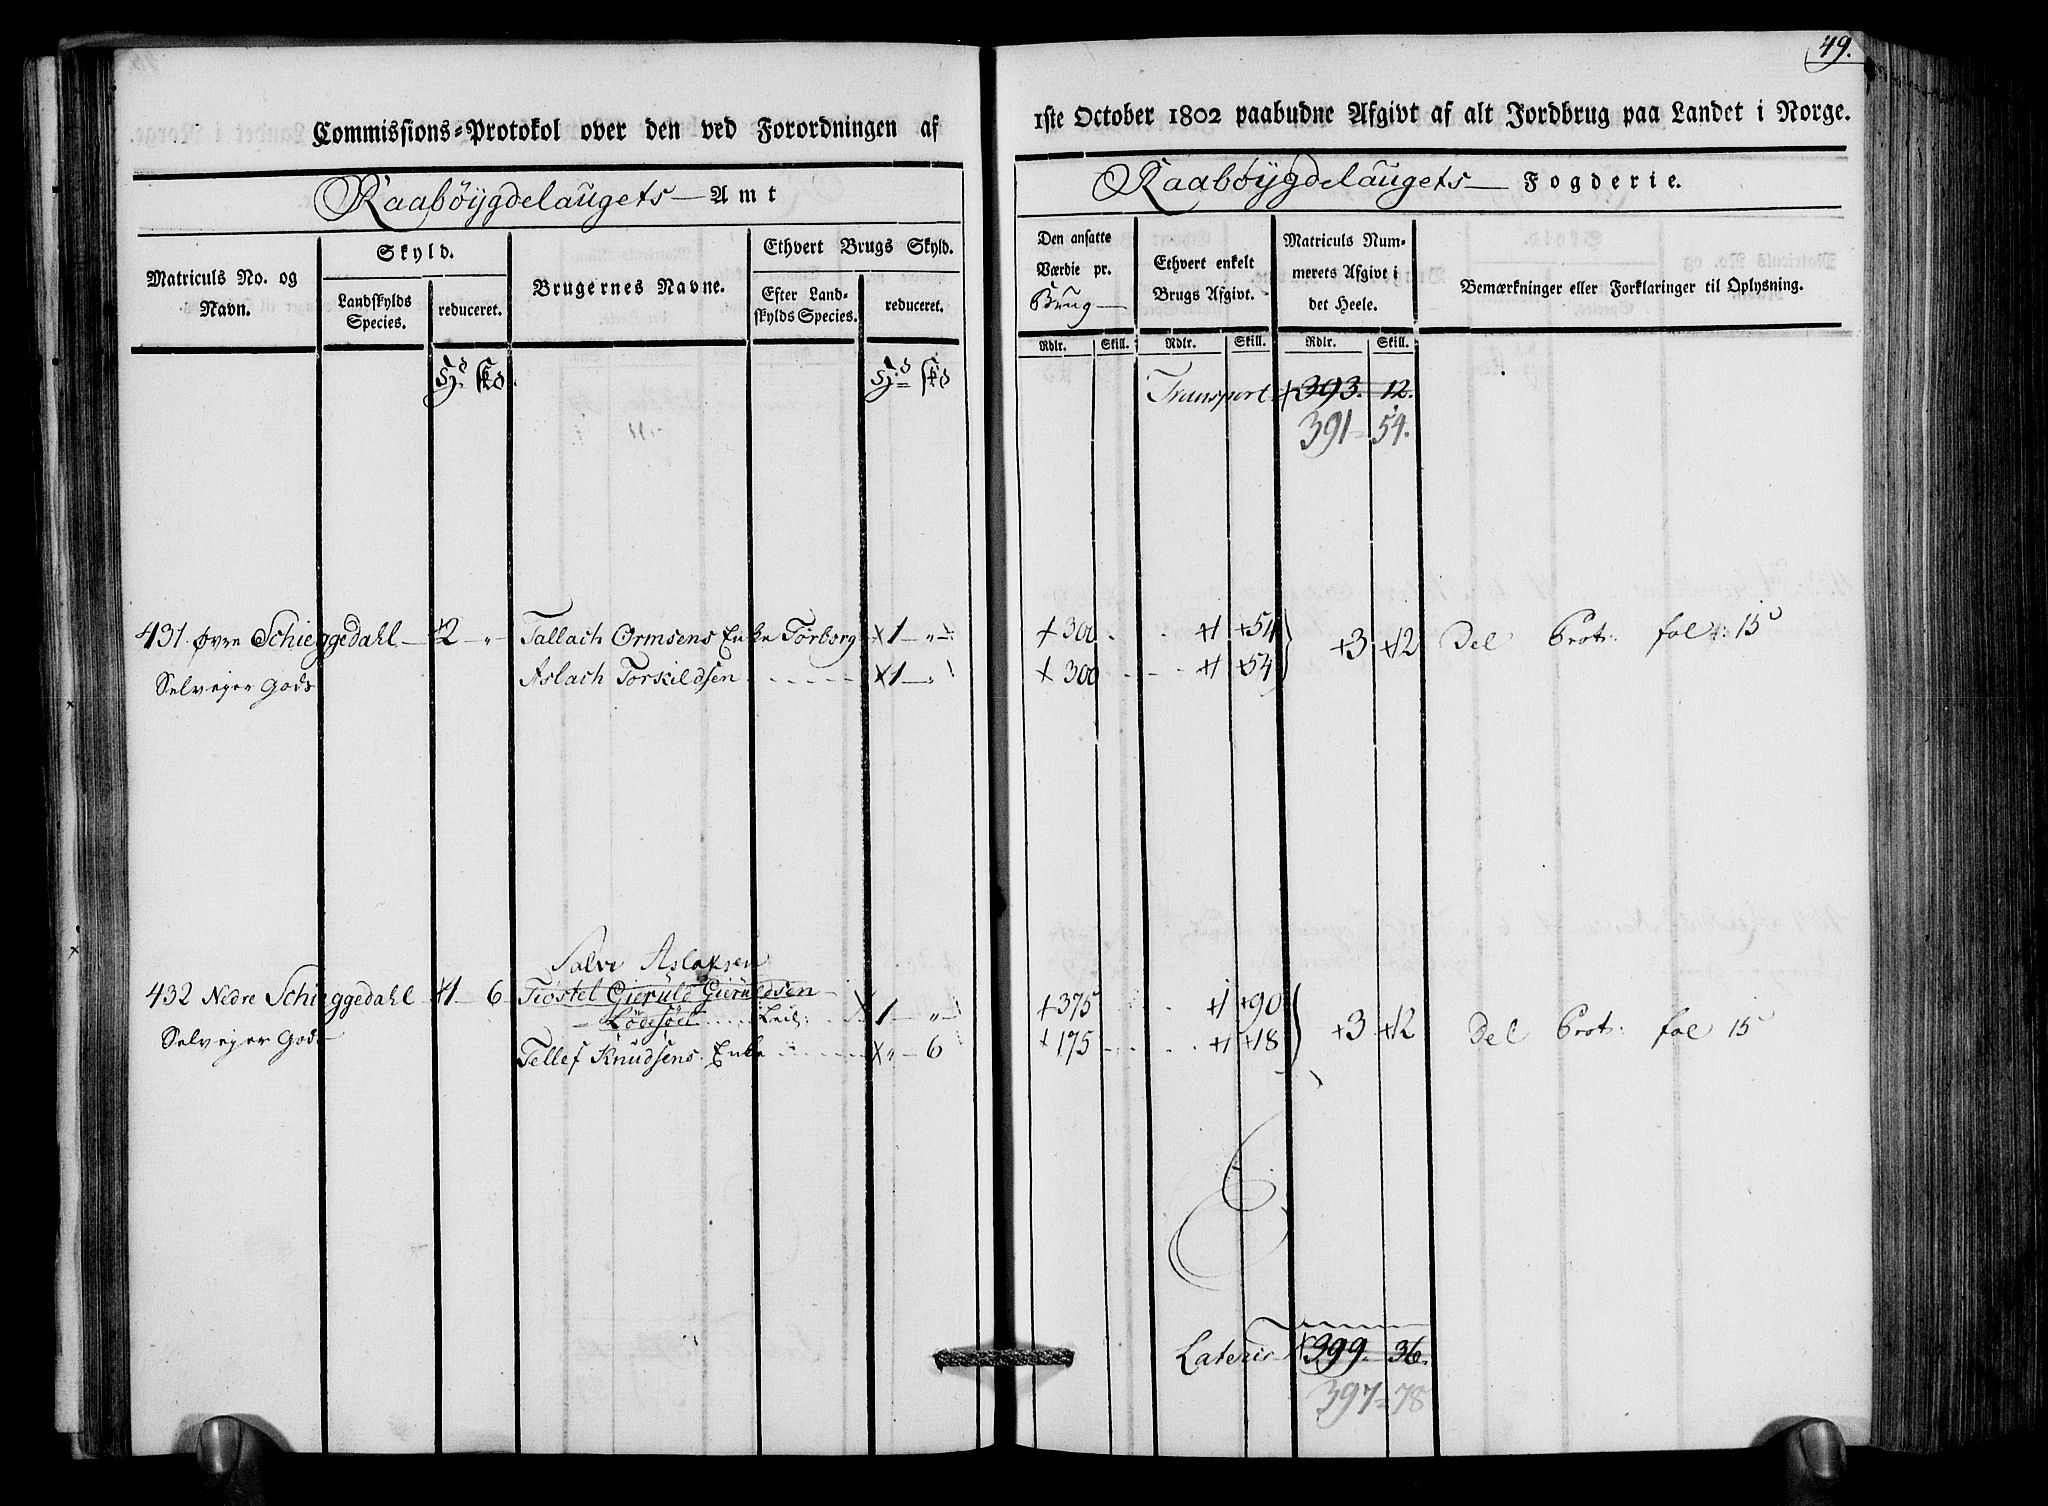 49.
Commissions-Protokol over den ved Forordningen af 1ste October 1802 paabudne Afgivt af alt Jordbrug paa Landet i Norge.
Raabøygdelaugets Amt
Raabøygdelaugets Fogderie.
Matriculs No. og Navn.
Skyld.
Landskylds Species.
reduceret.
Brugernes Navne.
Ethvert Brugs Skyld.
Efter Landskylds Species.
reduceret.
Den ansatte Værdie pr. Brug
Ethvert enkelt Brugs Afgivt.
Matriculs Nummerets Afgivt i det Heele.
Bemærkninger eller Forklaringer til Oplysning.
Rdlr. Skill. Rdlr. Skill. Rdlr. Skill.
Transport 393. 12.
391 = 54.
431 Øvre Schieggedahl 2 " Tallach Ormsens Enke Torborg 1 " 300 1 54 3 12 Del Prot: fol: 15
Selvejer Gods Aslach Torkildsen 1 " 300 1 54
Salve Aslaksen
432 Nedre Schieggedahl 1 6 Tiøstel Gieruld Gieruldsen
Lødesøel Leil: 1 " 375 1 90 3 12 Del Prot: fol 15
Selvejer Gods Tellef Knudsens Enke " 6 175 1 18
Lateris 399. 36.
397 = 78